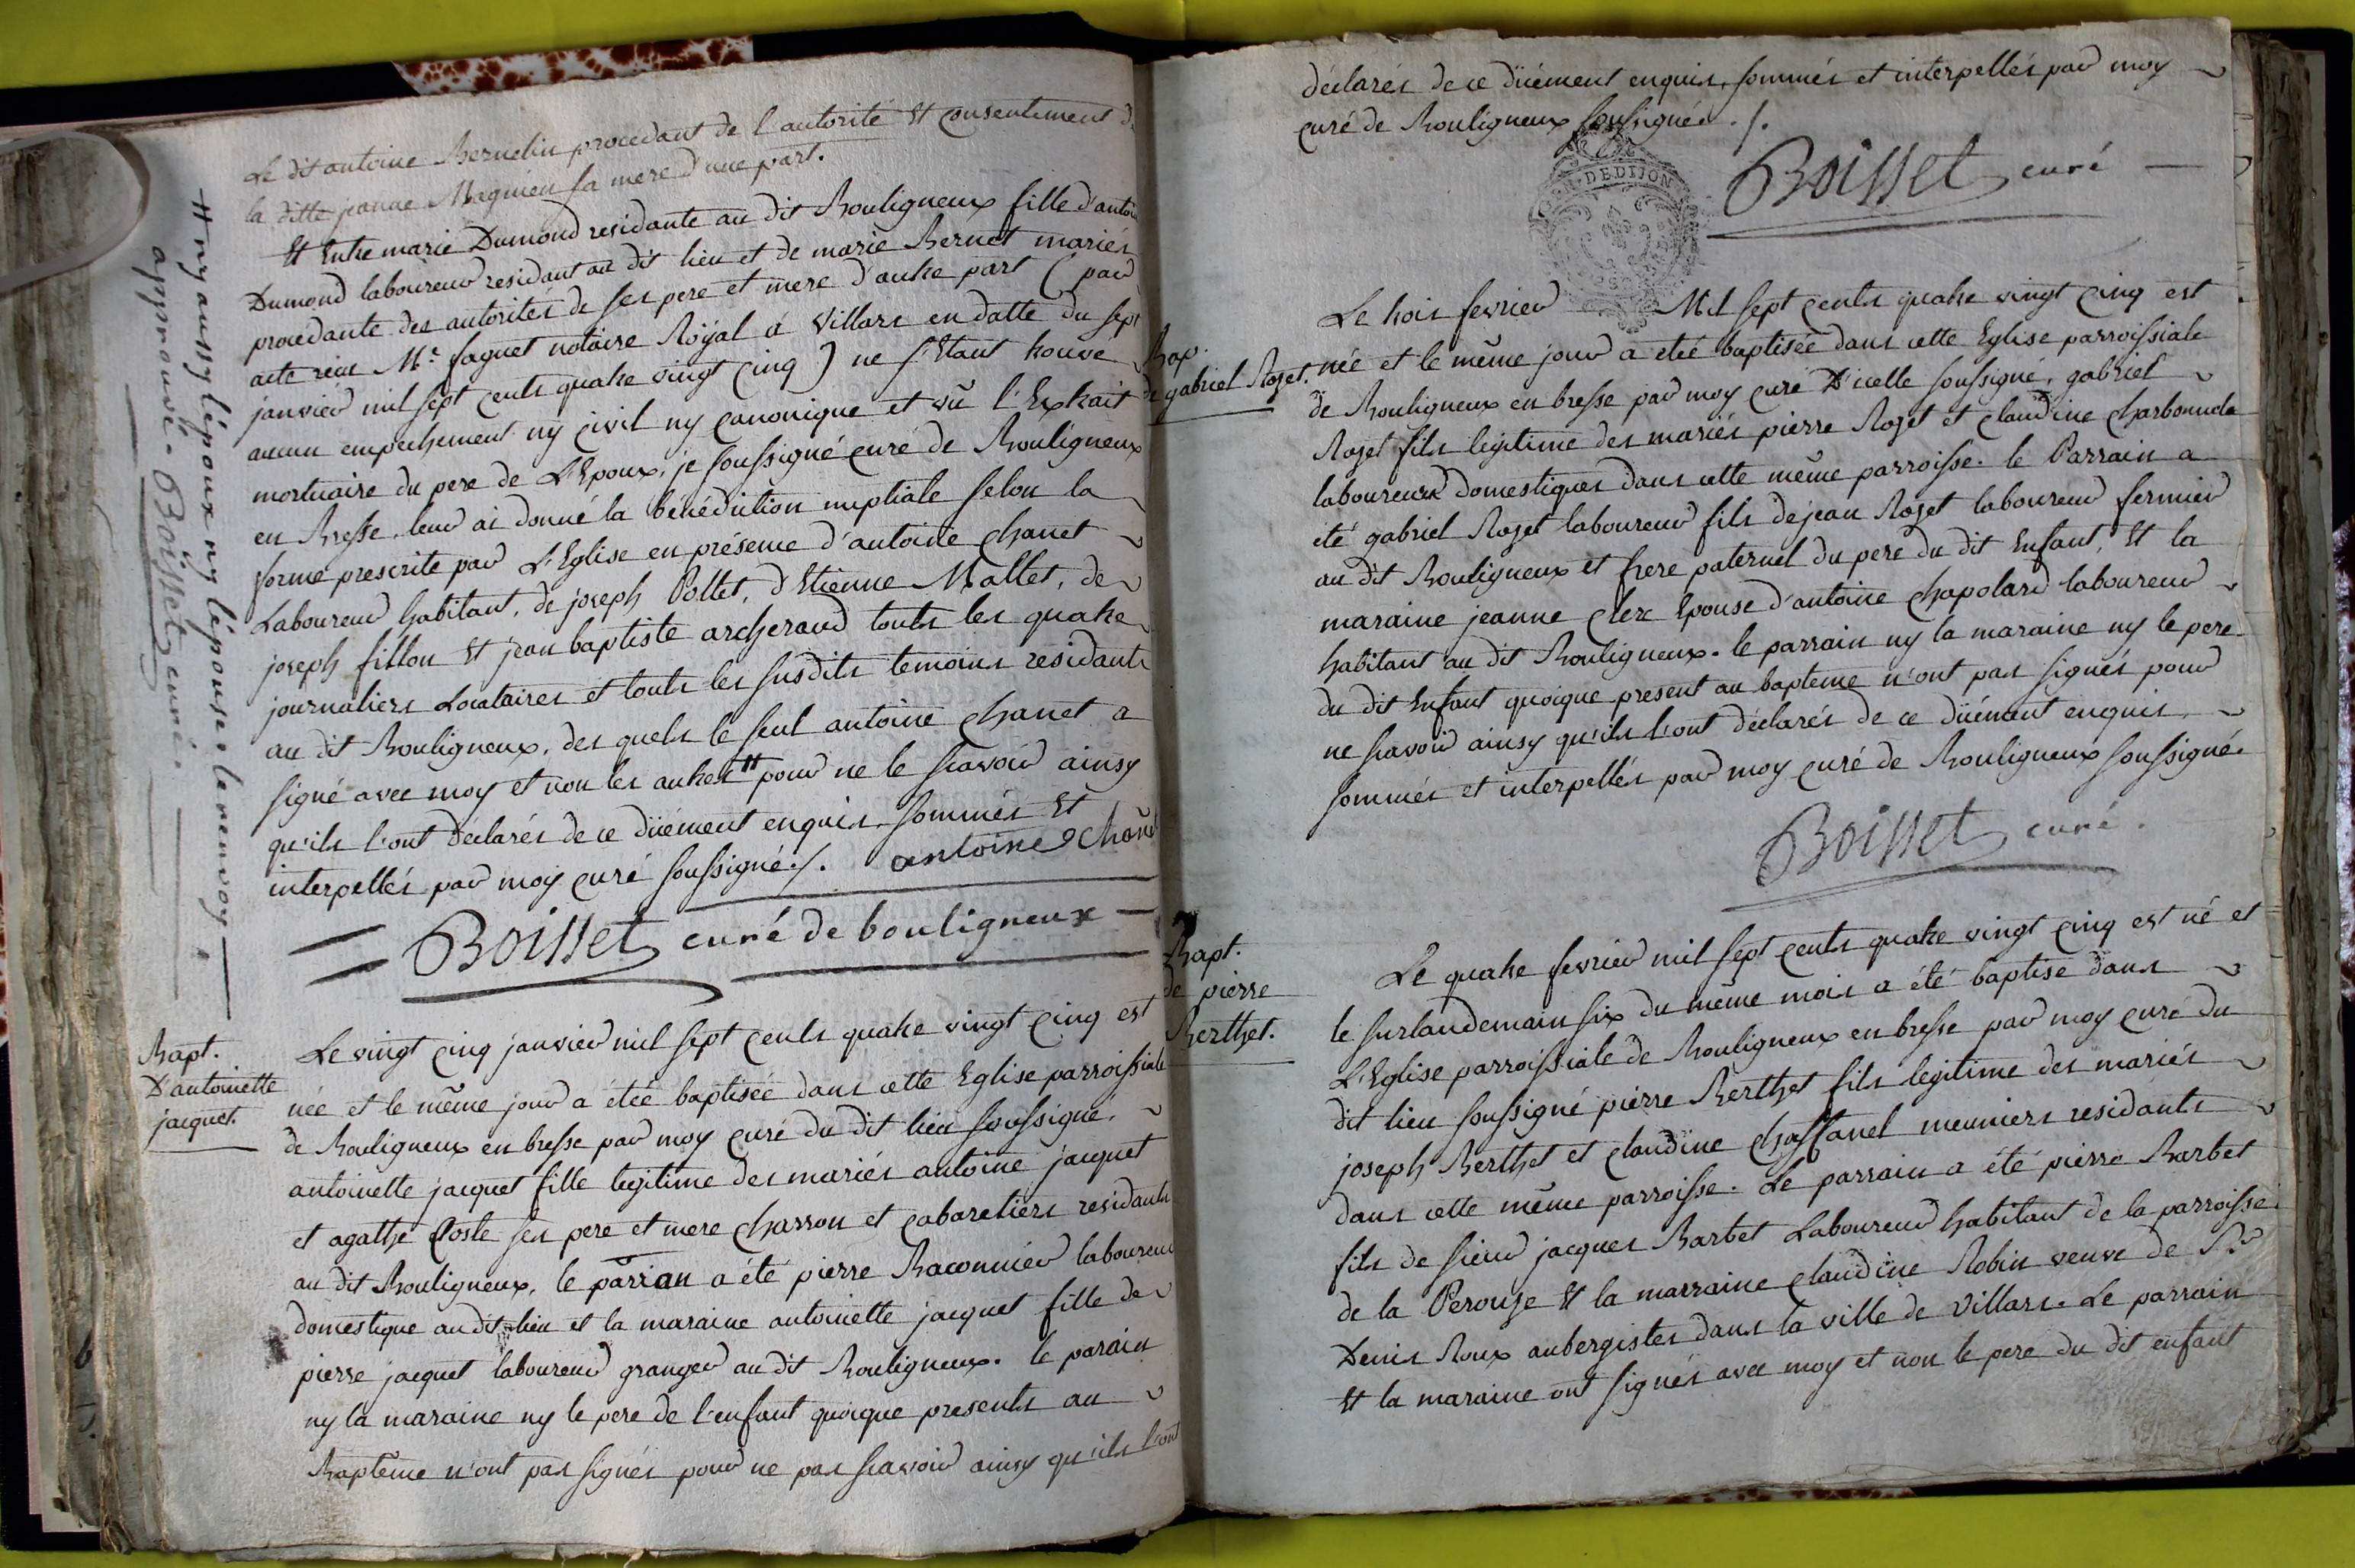 Le dit antoine Bernelin procedant de l'autorité Et consentement de
la ditte jeanne Magnien sa mere d'une part.
Et Entre marie Dumond residante au dit Bouligneux fille d'antoine
Dumond laboureur residant au dit lieu et de marie Bernet mariés
procedante des autorités de ses pere et mere d'autre part ( par
acte reçu Mr. faguet notaire Royal a Villars en datte du sept
janvier mil sept cents quatre vingt cinq ) ne s'Etant trouvé
aucun empechement ny civil ny canonique et vû l'Extrait
mortuaire du pere de L'Epoux, je soussigné curé de Bouligneux
en Bresse, leur ai donné la bénédiction nuptiale selon la
forme prescrite par L'Eglise en présence d'antoine chanet
Laboureur habitant, de joseph Pollet, d'Etienne Mallet, de
joseph fillon Et jean baptiste archeraud touts les quatre
journaliers Locataires et touts les susdits temoins residants
au dit Bouligneux, des quels le seul antoine chanet a
signé avec moy et non les autres # pour ne le scavoir ainsy
qu'ils l'ont déclarés de ce düement enquis, sommés Et
interpellés par moy curé soussigné ./. antoine chanet
Boisset curé de bouligneux
# ny aussy l'époux ny l'épouse le renvoy
approuvé. Boisset curé.
Bapt.
D'antoinette
jacquet.
Le vingt cinq janvier mil sept cents quatre vingt cinq est
née et le même jour a étée baptisée dans cette Eglise parroissiale
de Bouligneux en bresse par moy curé du dit lieu soussigné,
antoinette jacquet fille legitime des mariés antoine jacquet
et agathe Coste ses pere et mere charron et cabaretiers residants
au dit Bouligneux, le parian a été pierre Raconnier laboureur
domestique au dit lieu et la maraine antoinette jacquet fille de
pierre jacquet laboureur granger au dit Bouligneux. le parain
ny la maraine ny le pere de l'enfant quoique presents au
Baptême n'ont pas signés pour ne pas scavoir ainsy qu'ils l'ont
déclarés de ce düement enquis, sommés et interpellés par moy
curé de Bouligneux soussigné ./.
DE DIJON
Boisset curé
Bap.
de gabriel Rozet.
Le trois fevrier Mil sept cents quatre vingt cinq est
née et le même jour a eteé baptisée dans cette Eglise parroissiale
de Bouligneux en bresse par moy curé D'icelle soussigné, gabriel
Rozet fils legitime des mariés pierre Rozet et claudine charbonnela
laboureurs domestiques dans cette même parroisse. le Parrain a
eté gabriel Rozet laboureur fils de jean Rozet laboureur fermier
au dit Bouligneux et frere paternel du pere du dit Enfant, Et la
maraine jeanne clerc Epouse d'antoine chapolard laboureur
habitant au dit Bouligneux. le parrain ny la maraine ny le pere
du dit Enfant quoique present au bapteme n'ont pas signés pour
ne scavoir ainsy qu'ils l'ont déclarés de ce düement enquis,
sommés et interpellés par moy curé de Bouligneux soussigné.
Boisset curé.
Bapt.
de pierre
Berthet.
Le quatre fevrier mil sept cents quatre vingt cinq est né et
le surlandemain six du même mois a été baptise dans
L'Eglise parroissiale de Bouligneux en bresse par moy curé du
dit lieu soussigné pierre Berthet fils legitime des mariés
joseph Berthet et claudine chaffanel meuniers residants
dans cette même parroisse. Le parrain a été pierre Barbet
fils de sieur jacques Barbet Laboureur habitant de la parroisse
de la Perouze Et la marraine claudine Robin veuve de Sr.
Denis Roux aubergistes dans la ville de Villars. Le parrain
Et la maraine ont signés avec moy et non le pere du dit enfant